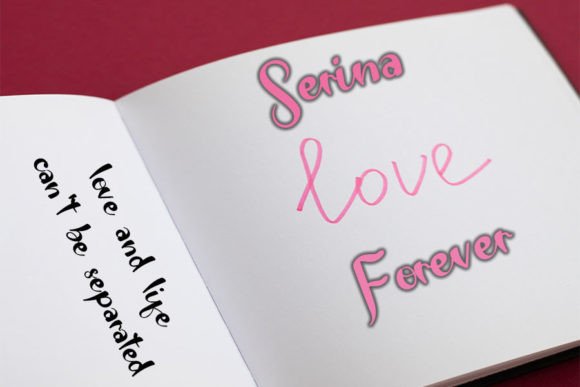 love and life
can't be separated
Serina
love
Forever